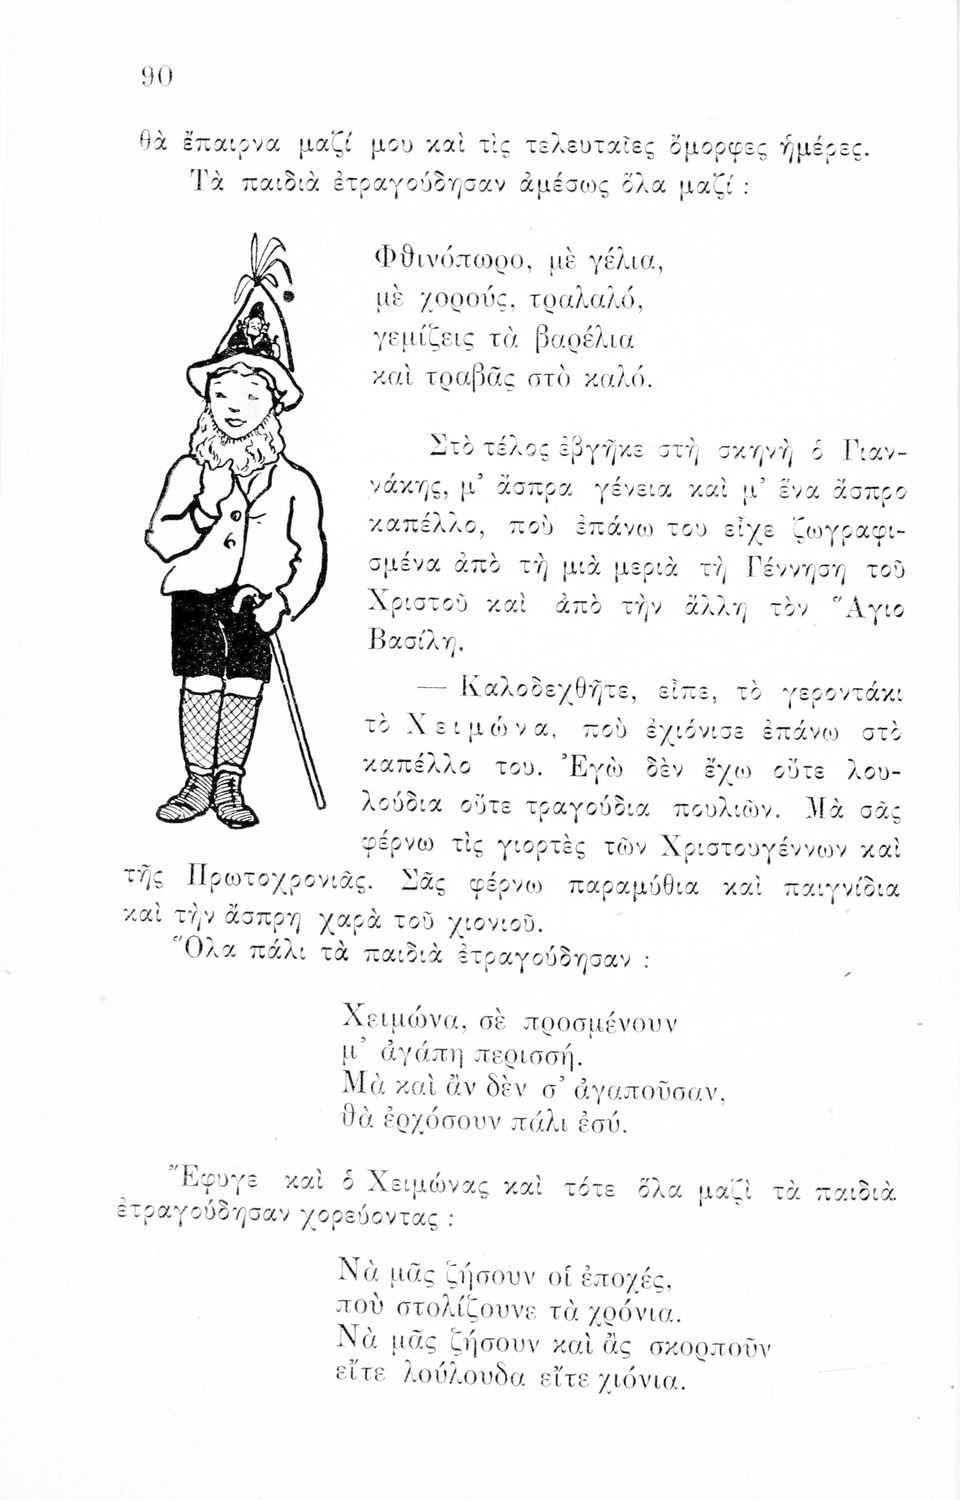 90
θὰ ἔπαιρνα μαζί μου καὶ τὶς τελευταῖες ὄμορφες ἡμέρες.
Τὰ παιδιὰ ἐτραγούδησαν ἀμέσως ὅλα μαζί :
Φθινόπωρο, μὲ γέλια,
μὲ χορούς, τραλαλό,
γεμίζεις τὰ βαρέλια
καὶ τραβᾶς στὸ καλό.
Στὸ τέλος ἐβγῆκε στὴ σκηνὴ ὁ Γιαν-
νάκης, μ’ ἄσπρα γένεια καὶ μ’ ἕνα ἄσπρο
καπέλλο, ποὺ ἐπάνω του εἶχε ζωγραφι-
σμένα ἀπὸ τὴ μιὰ μεριὰ τὴ Γέννηση τοῦ
Χριστοῦ καὶ ἀπὸ τὴν ἄλλη τὸν Ἅγιο
Βασίλη.
— Καλοδεχθῆτε, εἶπε, τὸ γεροντάκι
τὸ Χειμώνα, ποὺ ἐχιόνισε ἐπάνω στὸ
καπέλλο του. Ἐγὼ δὲν ἔχω οὔτε λου-
λούδια οὔτε τραγούδια πουλιῶν. Μὰ σᾶς
φέρνω τὶς γιορτὲς τῶν Χριστουγέννων καὶ
τῆς Πρωτοχρονιᾶς. Σᾶς φέρνω παραμύθια καὶ παιγνίδια
καὶ τὴν ἄσπρη χαρὰ τοῦ χιονιοῦ.
Ὅλα πάλι τὰ παιδιὰ ἐτραγούδησαν :
Χειμώνα, σὲ προσμένουν
μ’ ἀγάπη περισσή.
Μὰ καὶ ἂν δὲν σ’ ἀγαποῦσαν,
θὰ ἐρχόσουν πάλι ἐσύ.
Ἔφυγε καὶ ὁ Χειμώνας καὶ τότε ὅλα μαζὶ τὰ παιδιὰ
ἐτραγούδησαν χορεύοντας :
Νὰ μᾶς ζήσουν οἱ ἐποχές,
ποὺ στολίζουνε τὰ χρόνια.
Νὰ μᾶς ζήσουν καὶ ἂς σκορποῦν
εἴτε λούλουδα εἴτε χιόνια.